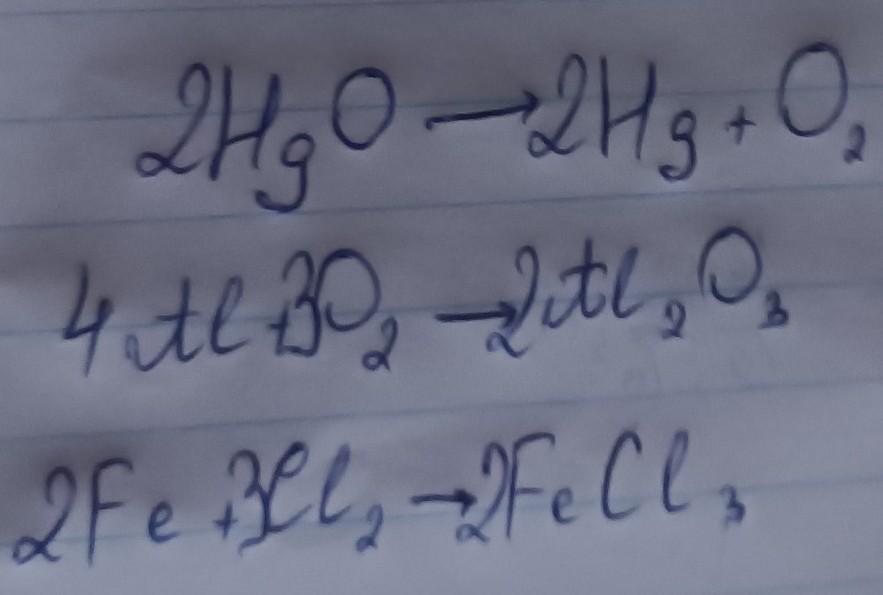 2HgO → 2Hg + O₂
4Al + 3O₂ → 2Al₂O₃
2Fe + 3Cl₂ → 2FeCl₃